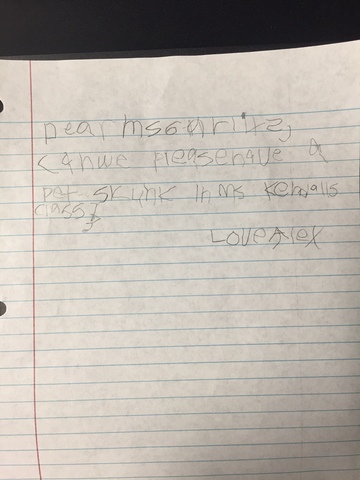 Dear, Ms Garitz,
Can we please have a
pet skunk in Ms Kendalls
class?
Love Alex